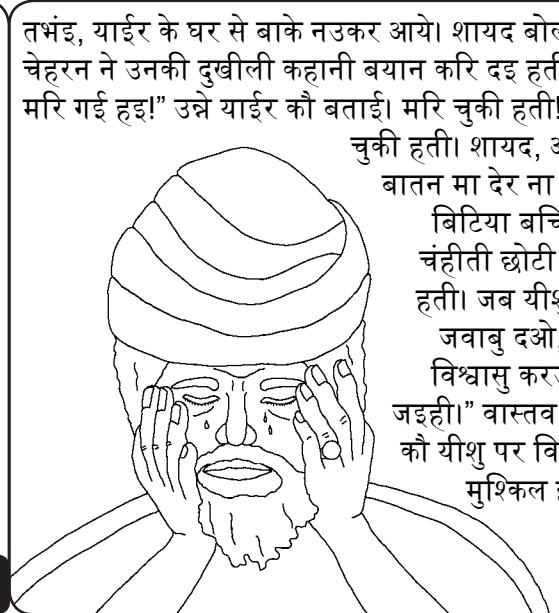 तभंइ, याईर के घर से बाके नउकर आये। शायद
चेहरन ने उनकी दुखीली कहानी बयान करि दइ
मरि गई हइ!” उन्ने याईर कौ बताई। मरि चुकी हती!
चुकी हती। शायद,
बातन मा देर ना
बिटिया
चंहीती छोटी
हती। जब
जवाबु दओ
विश्वासु
जइही।” वास्तव
कौ यीशु पर
मुश्किल